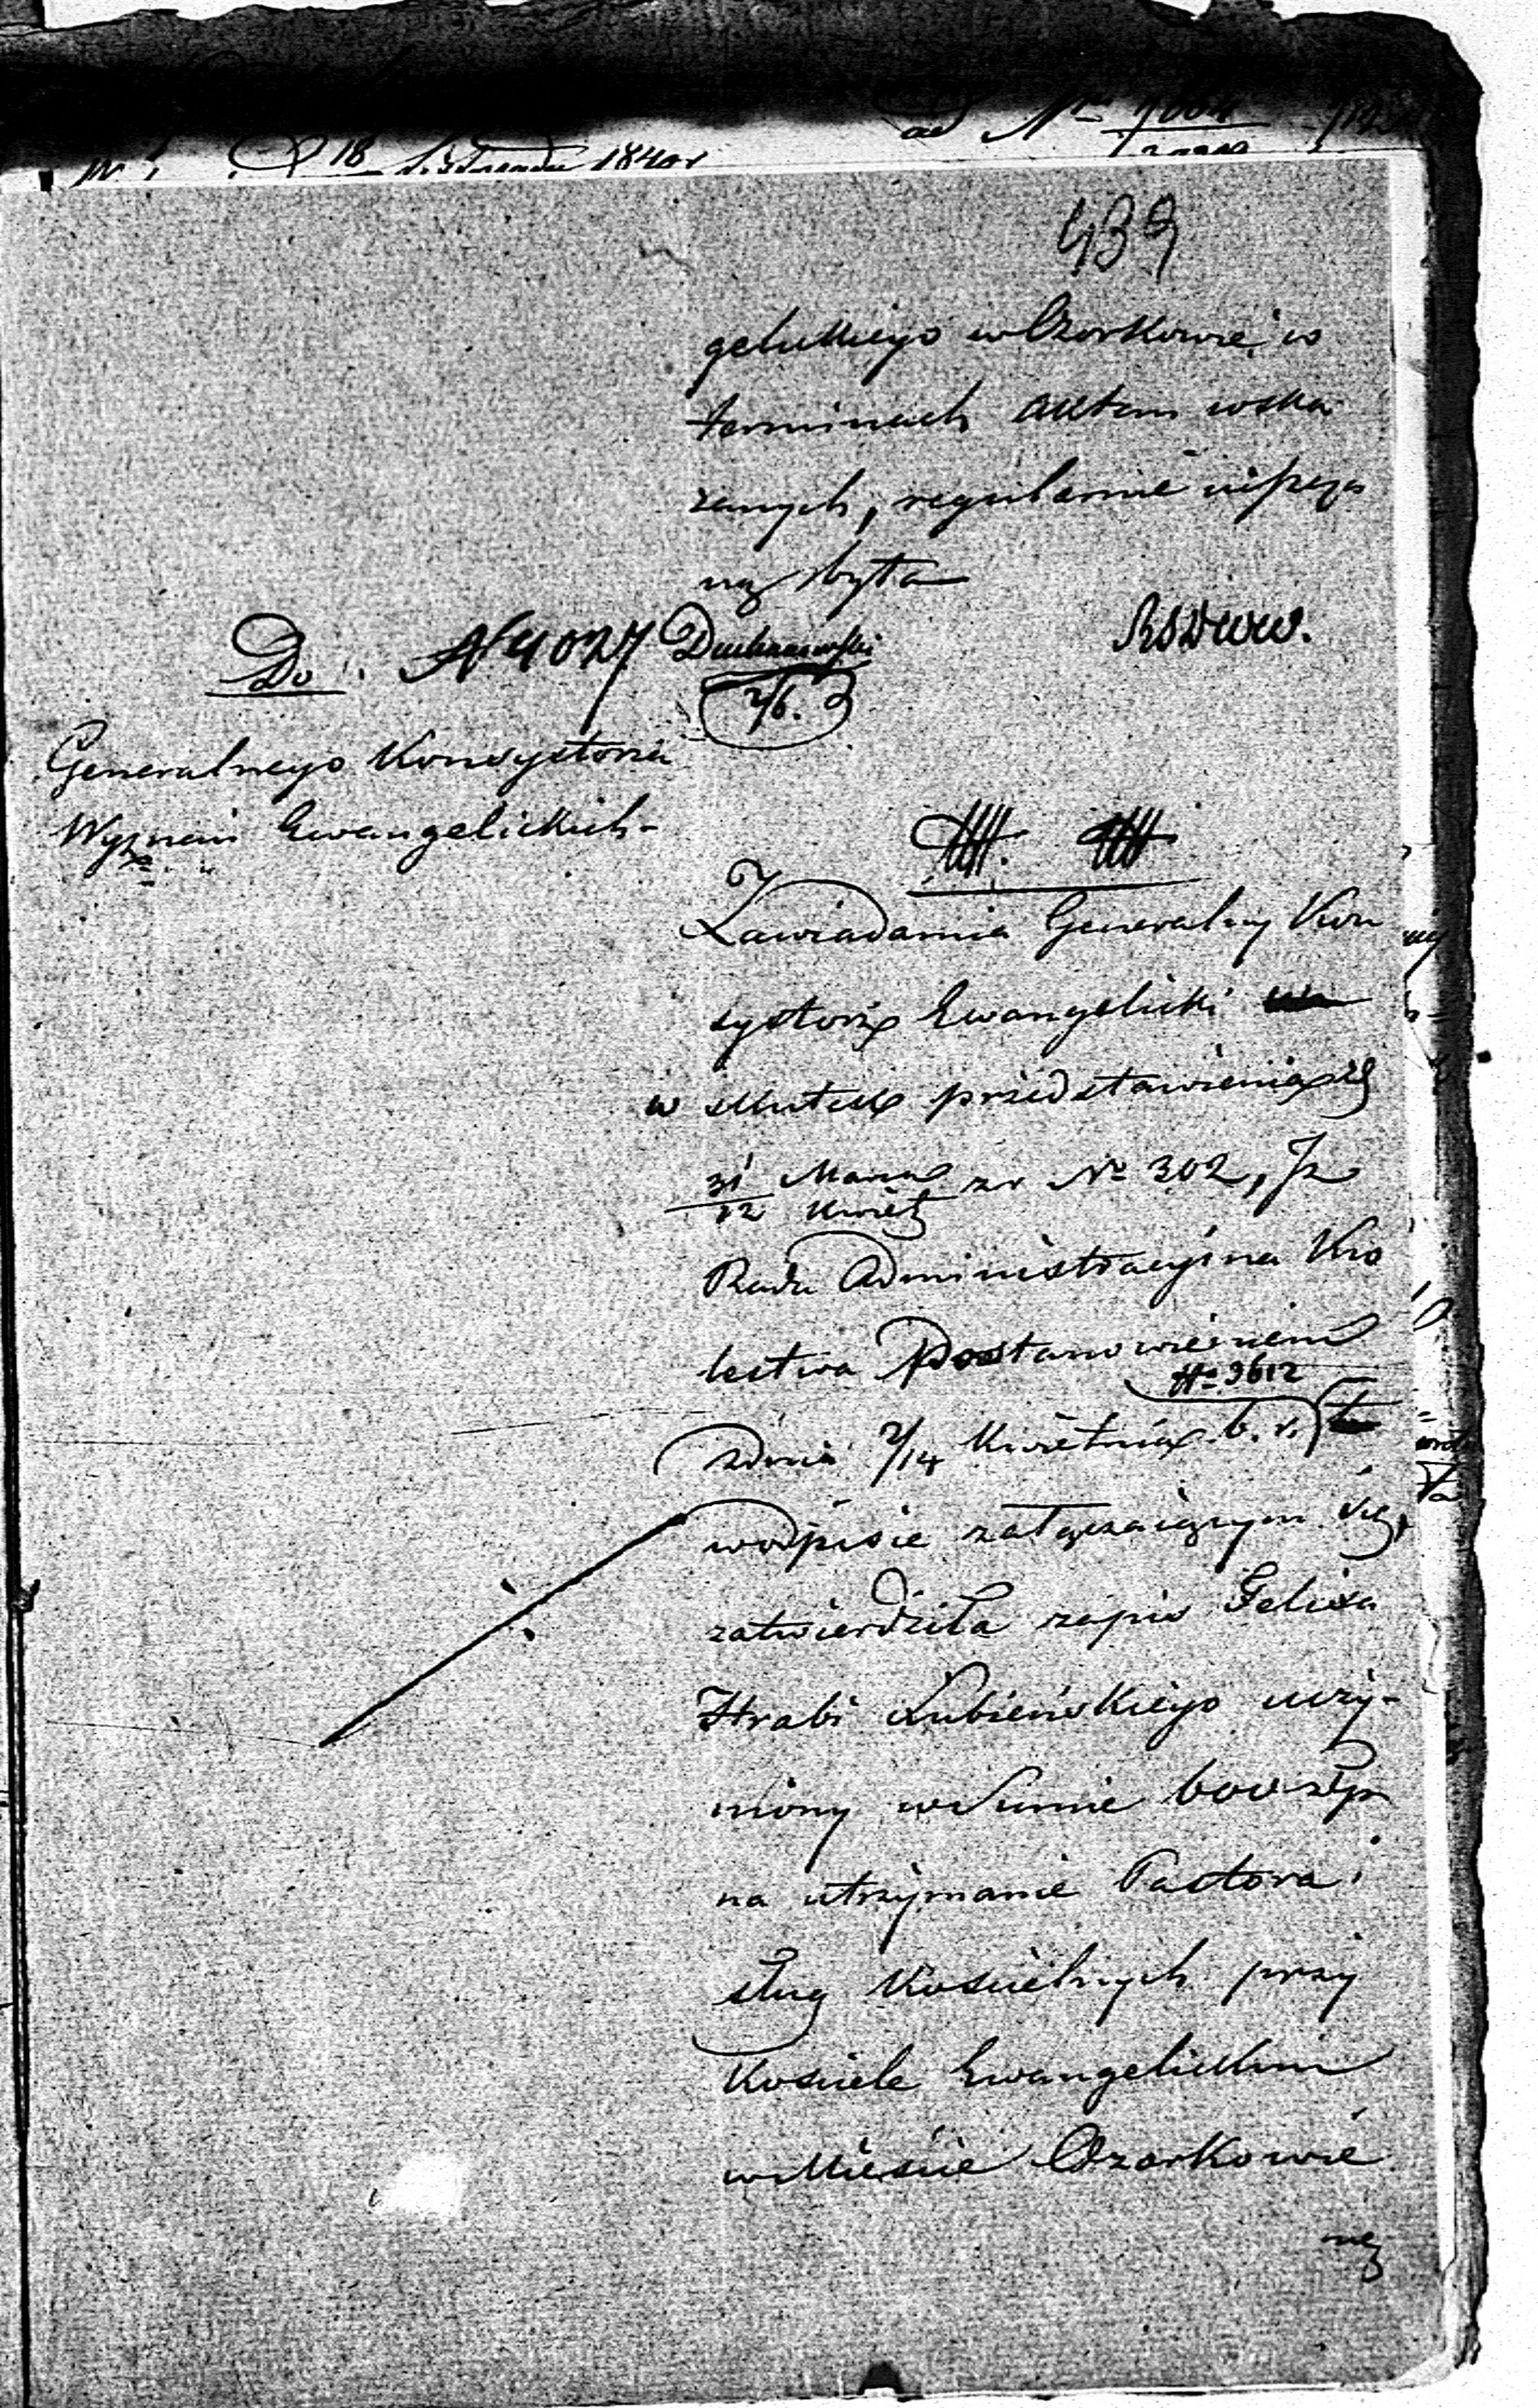 ad Nro
18 Listopada 1840 r
439
gelickiego w Ozorkowie w
terminach aktem wska
zanych, regularnie uiszcza
ną była
Do N 4027
2/6.
Generalnego Konsystorza
Wyznań Ewangelickich
Zawiadamia Generalny Kon
systorz Ewangelicki
w skutek przedstawienia z d
31 Marca / 12 Kwiet z r No 302, Iż
Rada Administracyjna Kró
lestwa Postanowieniem
No 3612
z dnia 2/14 Kwietnia b. r.
w odpisie załączaiącym się,
zatwierdziła zapis Felixa
Hrabi Łubieńskiego uczy-
niony w Summie 600 złp
na utrzymanie Pastora i
sług Kościelnych przy
Kościele Ewangelickim
w Mieście Ozorkowie